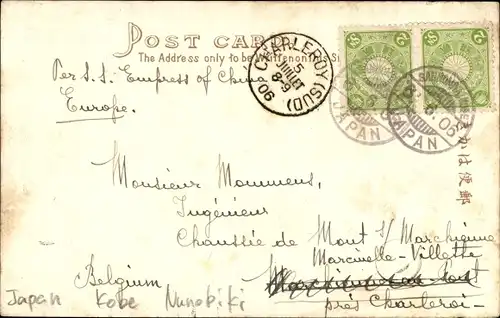 POST CARD
The Address only to be Written on this S
Per S.S. Empress of China
Europe.
CHARLEROY (SUD)
5
JUILLET
8-9
06
JAPAN
06
JAPAN
きかは便郵
Monsieur Mommens,
Ingénieur
Chaussée de Mont s/ Marchienne
Marcinelle-Villette
Belgium
près Charleroi-
Japan Kobe Nunobiki